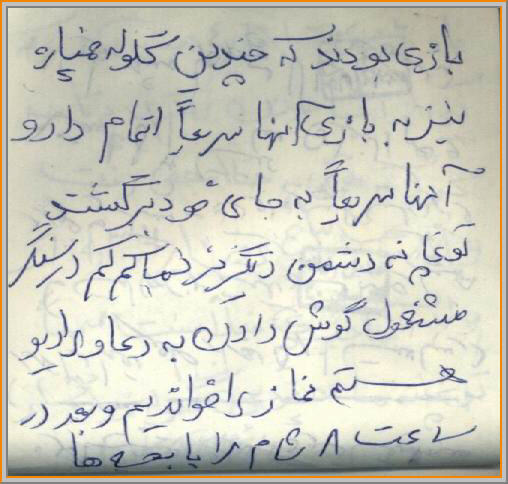 بازی بودند که چندین گلوله خمپاره
نیز به بازی آنها سریعاً اتمام داد و
آنها سریعاً به جای خود برگشت
توپخانه دشمن دیگر نیز کم کم در سنگر
مشغول گوش دادن به دعا و رادیو
هستم نماز را خواندیم و بعد در
ساعت ۸ شام را با بچه ها